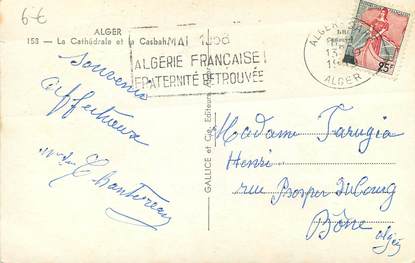 6€
ALGER
153 - La Cathédrale et la Casbah
MAI 1958
ALGERIE FRANCAISE!
FRATERNITÉ RETROUVÉE
ALGER
13
19
ALGER
25F
Souvenirs
affectueux
GALLICE et Cie, Editeurs, Alger
Madame Farugia
Henri
rue Prosper Dubourg
Bône
Algérie